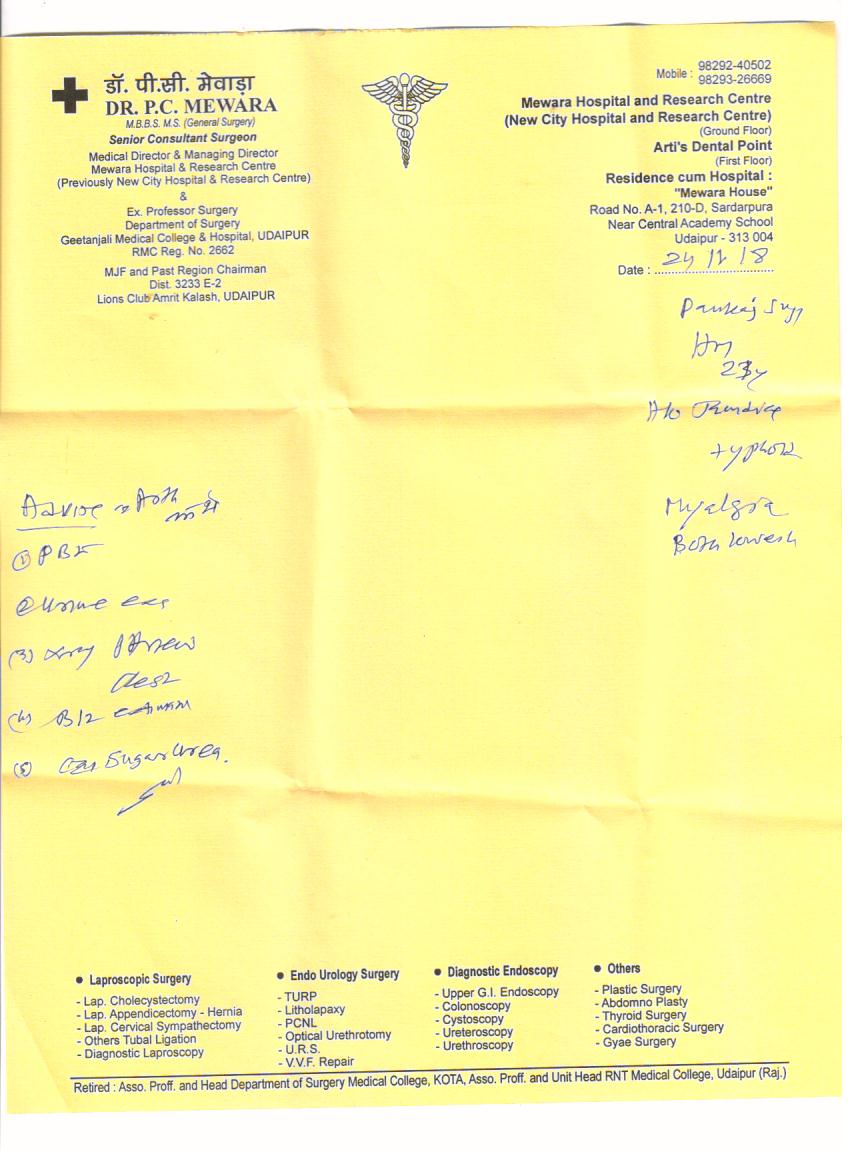 डॉ. पी.सी. मेवाड़ा
DR. P.C. MEWARA
M.B.B.S. M.S. (General Surgery)
Senior Consultant Surgeon
Medical Director & Managing Director
Mewara Hospital & Research Centre
(Previously New City Hospital & Research Centre)
&
Ex. Professor Surgery
Department of Surgery
Geetanjali Medical College & Hospital, UDAIPUR
RMC Reg. No. 2662
MJF and Past Region Chairman
Dist. 3233 E-2
Lions Club Amrit Kalash, UDAIPUR
Mobile : 98292-40502
98293-26669
Mewara Hospital and Research Centre
(New City Hospital and Research Centre)
(Ground Floor)
Arti's Dental Point
(First Floor)
Residence cum Hospital :
"Mewara House"
Road No. A-1, 210-D, Sardarpura
Near Central Academy School
Udaipur - 313 004
Date : 24 11 18
Pankaj
23y
H/o
typhoid
Myalgia
Both
Advise
① PBF
② Urine
(3) Xray
Chest
(4) B12
(5) Sugar Urea.
● Laproscopic Surgery
- Lap. Cholecystectomy
- Lap. Appendicectomy - Hernia
- Lap. Cervical Sympathectomy
- Others Tubal Ligation
- Diagnostic Laproscopy
● Endo Urology Surgery
- TURP
- Litholapaxy
- PCNL
- Optical Urethrotomy
- U.R.S.
- V.V.F. Repair
● Diagnostic Endoscopy
- Upper G.I. Endoscopy
- Colonoscopy
- Cystoscopy
- Ureteroscopy
- Urethroscopy
● Others
- Plastic Surgery
- Abdomno Plasty
- Thyroid Surgery
- Cardiothoracic Surgery
- Gyae Surgery
Retired : Asso. Proff. and Head Department of Surgery Medical College, KOTA, Asso. Proff. and Unit Head RNT Medical College, Udaipur (Raj.)